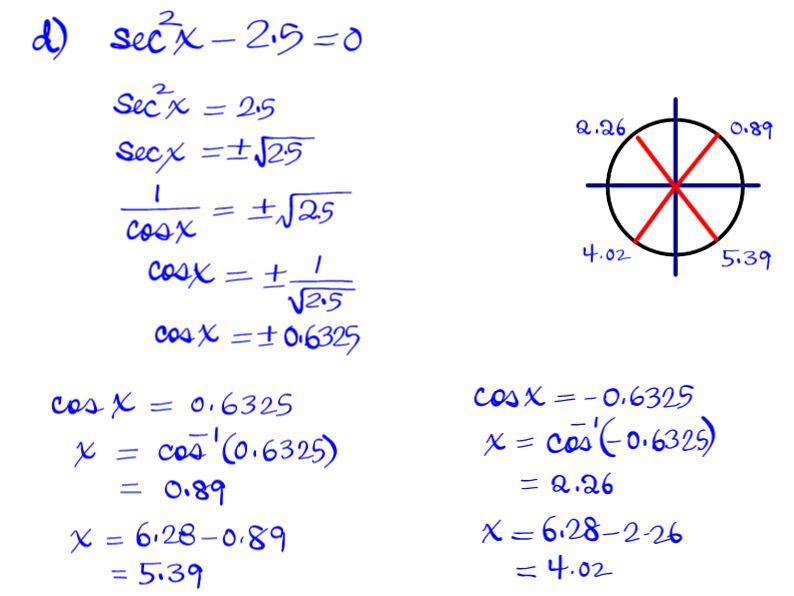 d) sec²x − 2.5 = 0
sec²x = 2.5
secx = ±√2.5
1/cosx = ±√2.5
cosx = ± 1/√2.5
cosx = ± 0.6325
2.26
0.89
4.02
5.39
cosx = 0.6325
x = cos⁻¹(0.6325)
= 0.89
x = 6.28 − 0.89
= 5.39
cosx = −0.6325
x = cos⁻¹(−0.6325)
= 2.26
x = 6.28 − 2.26
= 4.02